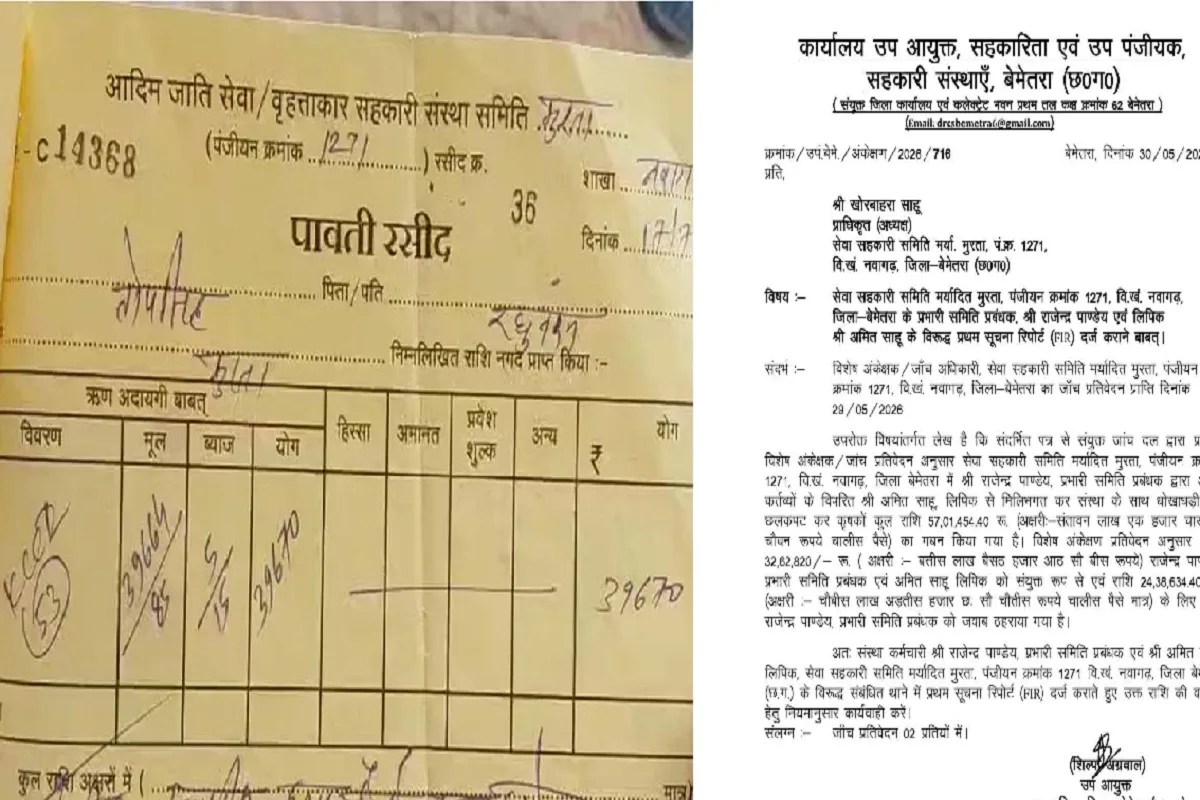 आदिम जाति सेवा/वृहत्ताकार सहकारी संस्था समिति मुरता
(पंजीयन क्रमांक 1271) रसीद क्र.
-C 14368
36
शाखा
पावती रसीद
दिनांक 17/7
पिता/पति
निम्नलिखित राशि नगद प्राप्त किया :-
मुरता
ऋण अदायगी बाबत्
विवरण मूल ब्याज योग हिस्सा अमानत प्रवेश शुल्क अन्य योग ₹
KCC
53
39664/85 5/15 39670 39670
कुल राशि अक्षरों में (
मात्र)
कार्यालय उप आयुक्त, सहकारिता एवं उप पंजीयक,
सहकारी संस्थाएँ, बेमेतरा (छ0ग0)
(संयुक्त जिला कार्यालय एवं कलेक्ट्रेट भवन प्रथम तल कक्ष क्रमांक 62 बेमेतरा)
(Email: drcsbemetra6@gmail.com)
क्रमांक/उ.पं.बेमे./अंकेक्षण/2026/716 बेमेतरा, दिनांक 30/05/202
प्रति,
श्री खोरबाहरा साहू
प्राधिकृत (अध्यक्ष)
सेवा सहकारी समिति मर्या. मुरता, पं.क्र. 1271,
वि.खं. नवागढ़, जिला–बेमेतरा (छ0ग0)
विषय :– सेवा सहकारी समिति मर्यादित मुरता, पंजीयन क्रमांक 1271, वि.खं. नवागढ़,
जिला–बेमेतरा के प्रभारी समिति प्रबंधक, श्री राजेन्द्र पाण्डेय एवं लिपिक
श्री अमित साहू के विरूद्ध प्रथम सूचना रिपोर्ट (FIR) दर्ज कराने बाबत्।
संदर्भ :– विशेष अंकेक्षक/जाँच अधिकारी, सेवा सहकारी समिति मर्यादित मुरता, पंजीयन
क्रमांक 1271, वि.खं. नवागढ़, जिला–बेमेतरा का जाँच प्रतिवेदन प्राप्ति दिनांक
29/05/2026
उपरोक्त विषयांतर्गत लेख है कि संदर्भित पत्र से संयुक्त जांच दल द्वारा
विशेष अंकेक्षक/जांच प्रतिवेदन अनुसार सेवा सहकारी समिति मर्यादित मुरता, पंजीयन
1271, वि.खं. नवागढ़, जिला बेमेतरा में श्री राजेन्द्र पाण्डेय, प्रभारी समिति प्रबंधक द्वारा
कर्तव्यों के विपरित श्री अमित साहू, लिपिक से मिलिभगत कर संस्था के साथ
छलकपट कर कृषकों कुल राशि 57,01,454.40 रू. (अक्षरी:–संतावन लाख एक हजार चार
चौवन रूपये चालीस पैसे) का गबन किया गया है। विशेष अंकेक्षण प्रतिवेदन अनुसार
32,62,820/– रू. ( अक्षरी :– बतीस लाख बैसठ हजार आठ सौ बीस रूपये) राजेन्द्र
प्रभारी समिति प्रबंधक एवं अमित साहू लिपिक को संयुक्त रूप से एवं राशि 24,38,634.40
(अक्षरी :– चौबीस लाख अड़तीस हजार छ: सौ चौतीस रूपये चालीस पैसे मात्र) के लिए
राजेन्द्र पाण्डेय, प्रभारी समिति प्रबंधक को जवाब ठहराया गया है।
अतः संस्था कर्मचारी श्री राजेन्द्र पाण्डेय, प्रभारी समिति प्रबंधक एवं श्री अमित
लिपिक, सेवा सहकारी समिति मर्यादित मुरता, पंजीयन क्रमांक 1271 वि.खं. नवागढ़, जिला
(छ.ग.) के विरूद्ध संबंधित थाने में प्रथम सूचना रिपोर्ट (FIR) दर्ज कराते हुए उक्त राशि की
हेतु नियमानुसार कार्यवाही करें।
संलग्न :– जाँच प्रतिवेदन 02 प्रतियों में।
(शिल्पा अग्रवाल)
उप आयुक्त